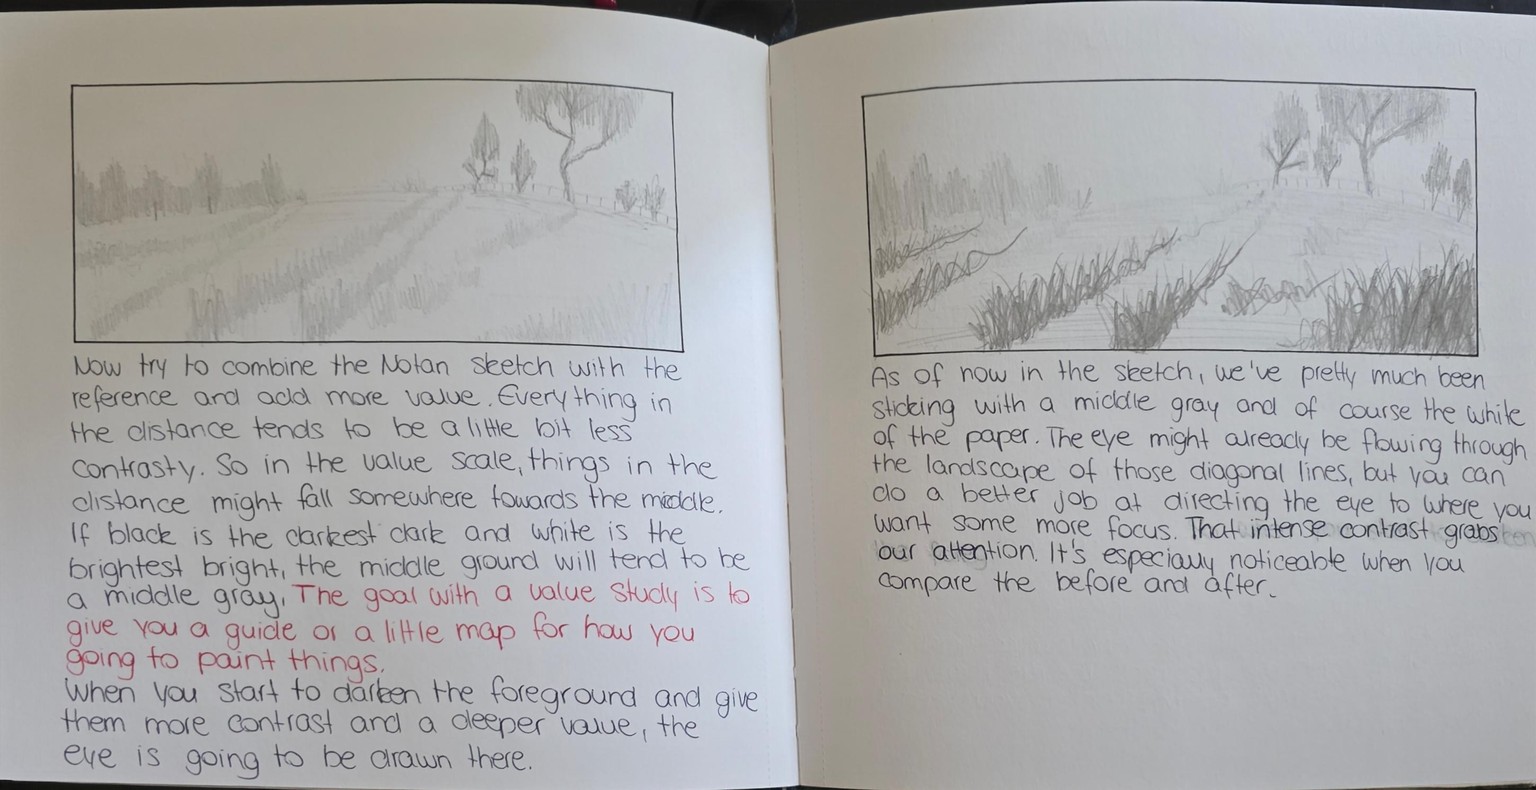 Now try to combine the Notan sketch with the
reference and add more value. Everything in
the distance tends to be a little bit less
contrasty. So in the value scale, things in the
distance might fall somewhere towards the middle.
If black is the darkest dark and white is the
brightest bright, the middle ground will tend to be
a middle gray. The goal with a value study is to
give you a guide or a little map for how you
going to paint things.
When you start to darken the foreground and give
them more contrast and a deeper value, the
eye is going to be drawn there.
As of now in the sketch, we've pretty much been
sticking with a middle gray and of course the white
of the paper. The eye might already be flowing through
the landscape of those diagonal lines, but you can
do a better job at directing the eye to where you
want some more focus. That intense contrast grabs
our attention. It's especially noticeable when you
compare the before and after.